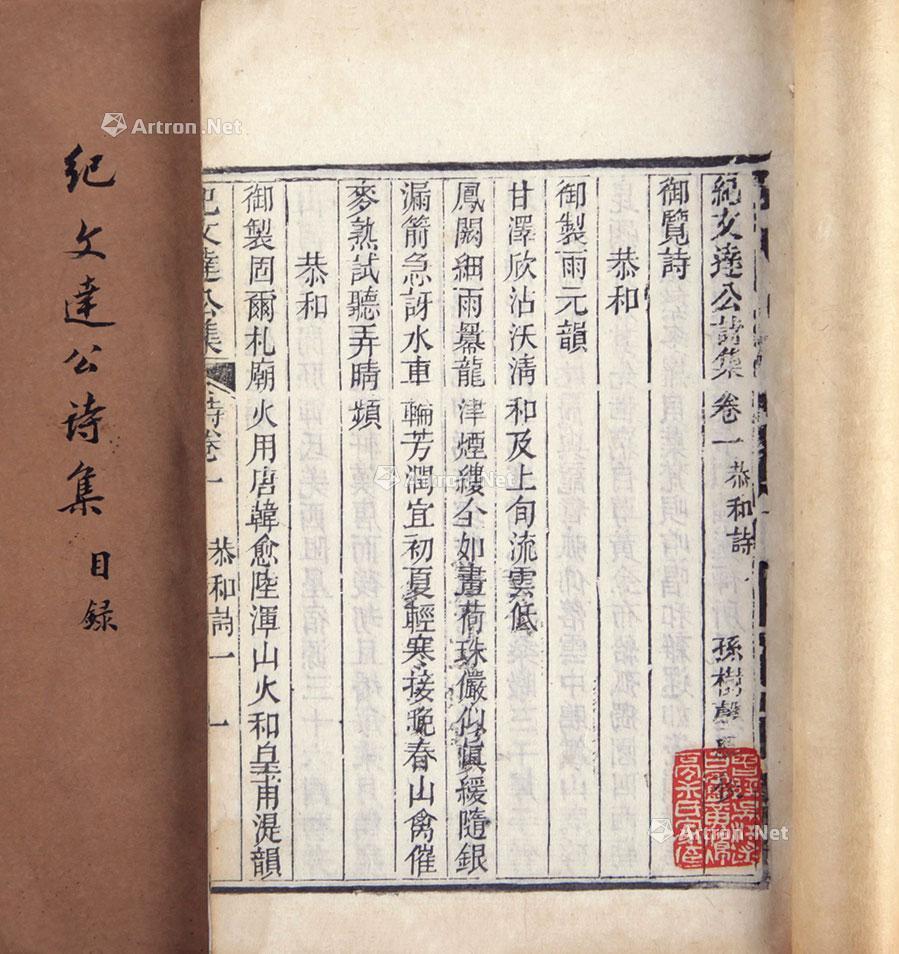 紀文達公诗集 目录
紀文達公詩集卷一 恭和詩一 孫樹馨
御覽詩
恭和
御製雨元韻
甘澤欣沾沃清和及上旬流雲低
鳳闕細雨羃龍津煙縷全如畫荷珠儼似嗔緩隨銀
漏箭急訝水車輪芳潤宜初夏輕寒接晚春山禽催
麥熟試聽弄晴頻
恭和
御製固爾札廟火用唐韓愈陸渾山火和皇甫湜韻
紀文達公集 詩卷一 恭和詩一 一
Artron.Net
Artron.Net
Artron.Net